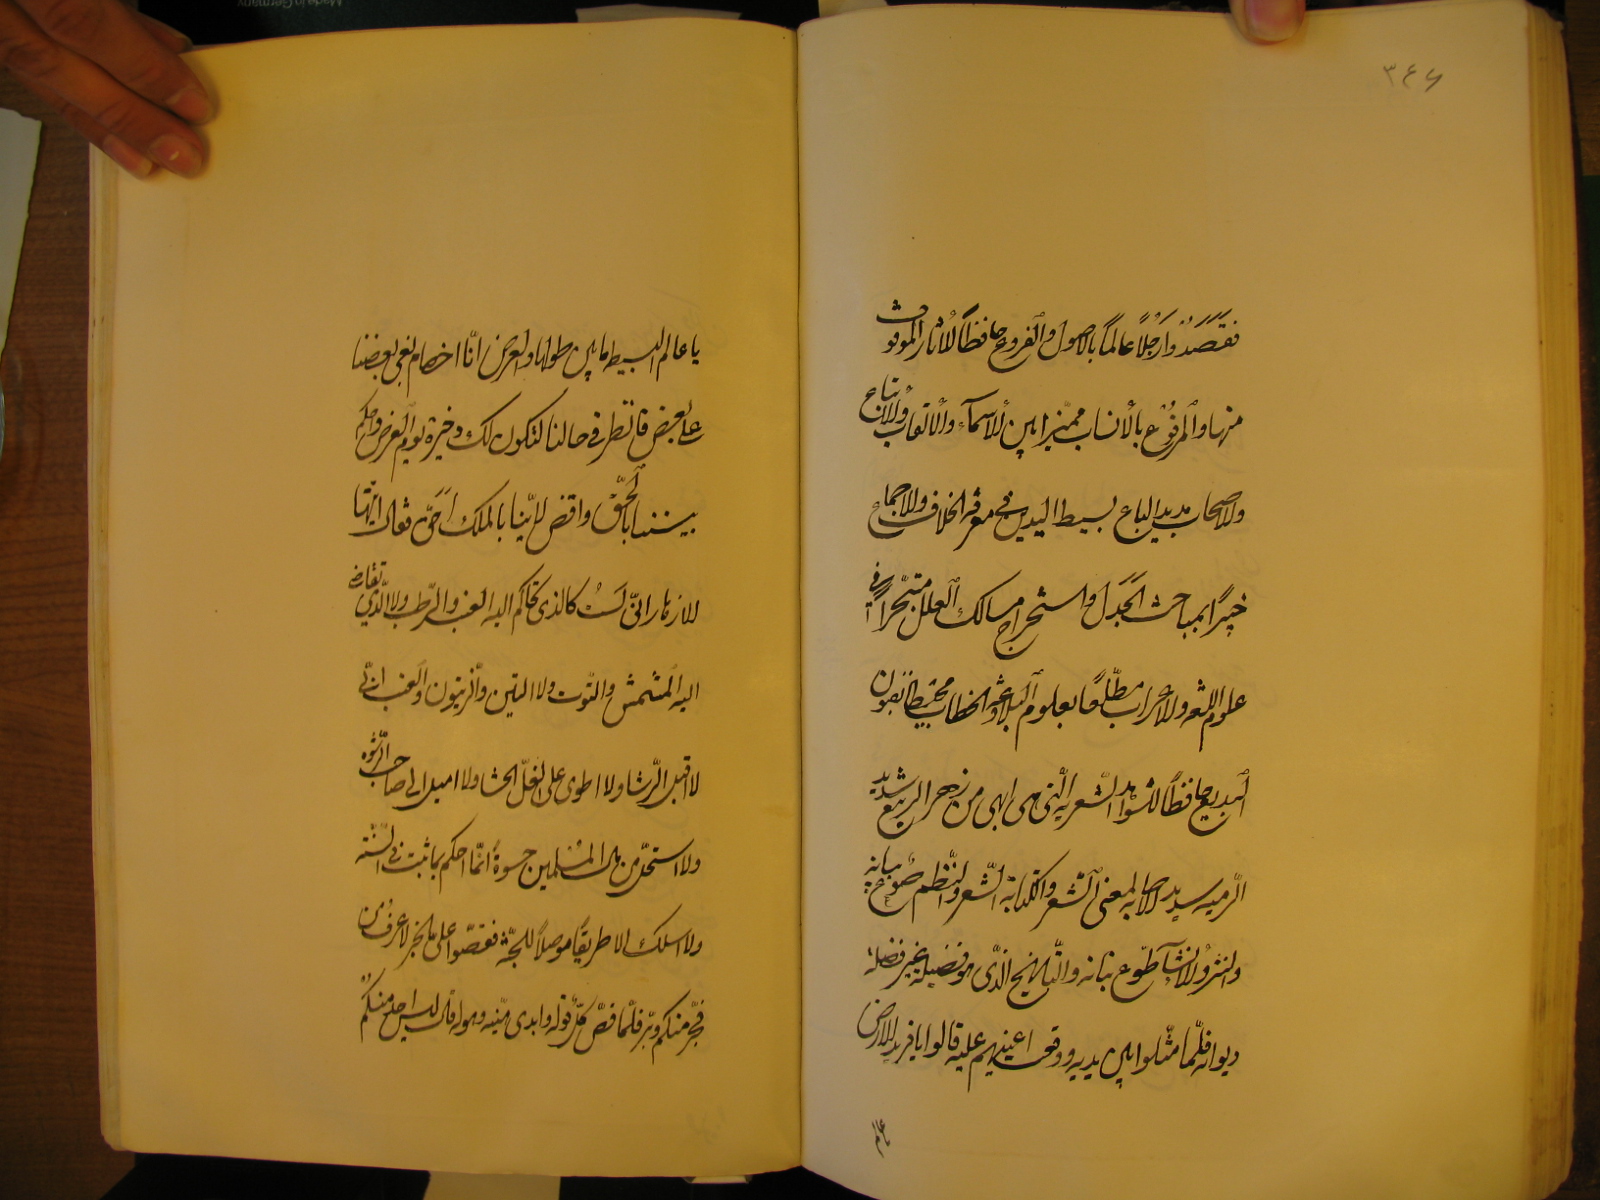 ٣٤٦
فقصدوا رجلاً عالماً بالاصول والفروع حافظاً للاثار الموقوف
منها والمرفوع بالأنساب مميزا بين الأسماء والألقاب والاتباع
والاصحاب مديد الباع بسيط اليدين في معرفة الخلاف والاجماع
خبيرا بمباحث الجدل واستخراج مسالك العلل متبحراً في
علوم اللغة والاعراب مطّلعا بعلوم البلاغة والخطاب محيطا بفنون
البديع حافظاً للشواهد الشعرية التي هي ابهى من زهر الربيع شديد
الرميه سديد الاصابه لمعنى الشعر والكتابة الشعر والنظم صوغ بيانه
والنثر والانشآ طوع بنانه والتاريخ الذي هو فضيلة غيره فضلة
ديوانه فلمّا مثلوا بين يديه ووقعت اعينهم عليه قالوا يا فريد الارض
يا عالم
يا عالم البسيط ما بين طولها والعرض انّا اخصام بغى بعضنا
على بعض فانظر في حالنا لتكون لك ذخيرة يوم العرض واحكم
بيننا بالحقّ واقض لأيّنا بالملك احقّ فقال ايتها
الازهار انّي لست كالذي تحاكم اليه العنب والرّطب ولا الذي تقاضى
اليه المشمش والتوت ولا التين والزيتون والعنب انّي
لا اقبل الرّشا ولا اطوى على الغلّ الحشا ولا اميل الى صاحب الرّشوه
ولا استحلّ من مال المسلمين حسوة انّما احكم بما ثبت في السّنّة
ولا اسلك الا طريقاً موصلاً للجنّة فقصّوا علىّ الخبر لاعرف من
فجر منكم وبرّ فلمّا قصّ كلّ قوله وابدى هيّنه وهوله قال ليس احد منكم